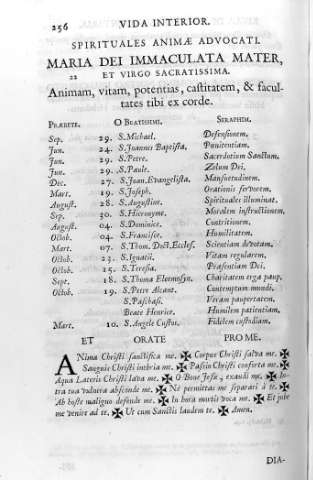 256 VIDA INTERIOR.
SPIRITUALES ANIMÆ ADVOCATI.
MARIA DEI IMMACULATA MATER,
22 ET VIRGO SACRATISSIMA.
Animam, vitam, potentias, castitatem, & facul-
tates tibi ex corde.
PRÆBETE. O BEATISSIMI. SERAPHIM.
Sep. 29. S. Michael. Defensionem.
Jun. 24. S. Joannes Baptista. Pœnitentiam.
Jun. 29. S. Petre. Sacerdotium Sanctum.
Jun. 29. S. Paule. Zelum Dei.
Dec. 27. S. Joan. Evangelista. Mansuetudinem.
Mart. 19. S. Joseph. Orationis fervorem.
August. 28. S. Augustine. Spiritualet illuminat.
Sep. 30. S. Hieronyme. Moralem instructionem.
August. 04. S. Dominice. Contritionem.
Octob. 04. S. Francisce. Humilitatem.
Mart. 07. S. Thom. Doct. Eccles. Scientiam devotam.
Octob. 23. S. Ignatii. Vitam regularem.
Octob. 15. S. Teresia. Præsentiam Dei.
Sept. 18. S. Thoma Eleemosyn. Charitatem erga paup.
Octob. 19. S. Petre Alcant. Contemptum mundi.
S. Paschasi. Veram paupertatem.
Beate Henrice. Humilem patientiam.
Mart. 10. S. Angele Custos. Fidelem custodiam.
ET ORATE PRO ME.
ANima Christi sanctifica me. ✠ Corpus Christi salva me. ✠
Sanguis Christi inebria me. ✠ Passio Christi conforta me. ✠
Aqua Lateris Christi lava me. ✠ O Bone Jesu, exaudi me. ✠ In-
tra tua vulnera absconde me. ✠ Ne permittas me separari à te. ✠
Ab hoste maligno defende me. ✠ In hora mortis voca me. ✠ Et jube
me venire ad te. ✠ Ut cum Sanctis laudem te. ✠ Amen.
DIA-